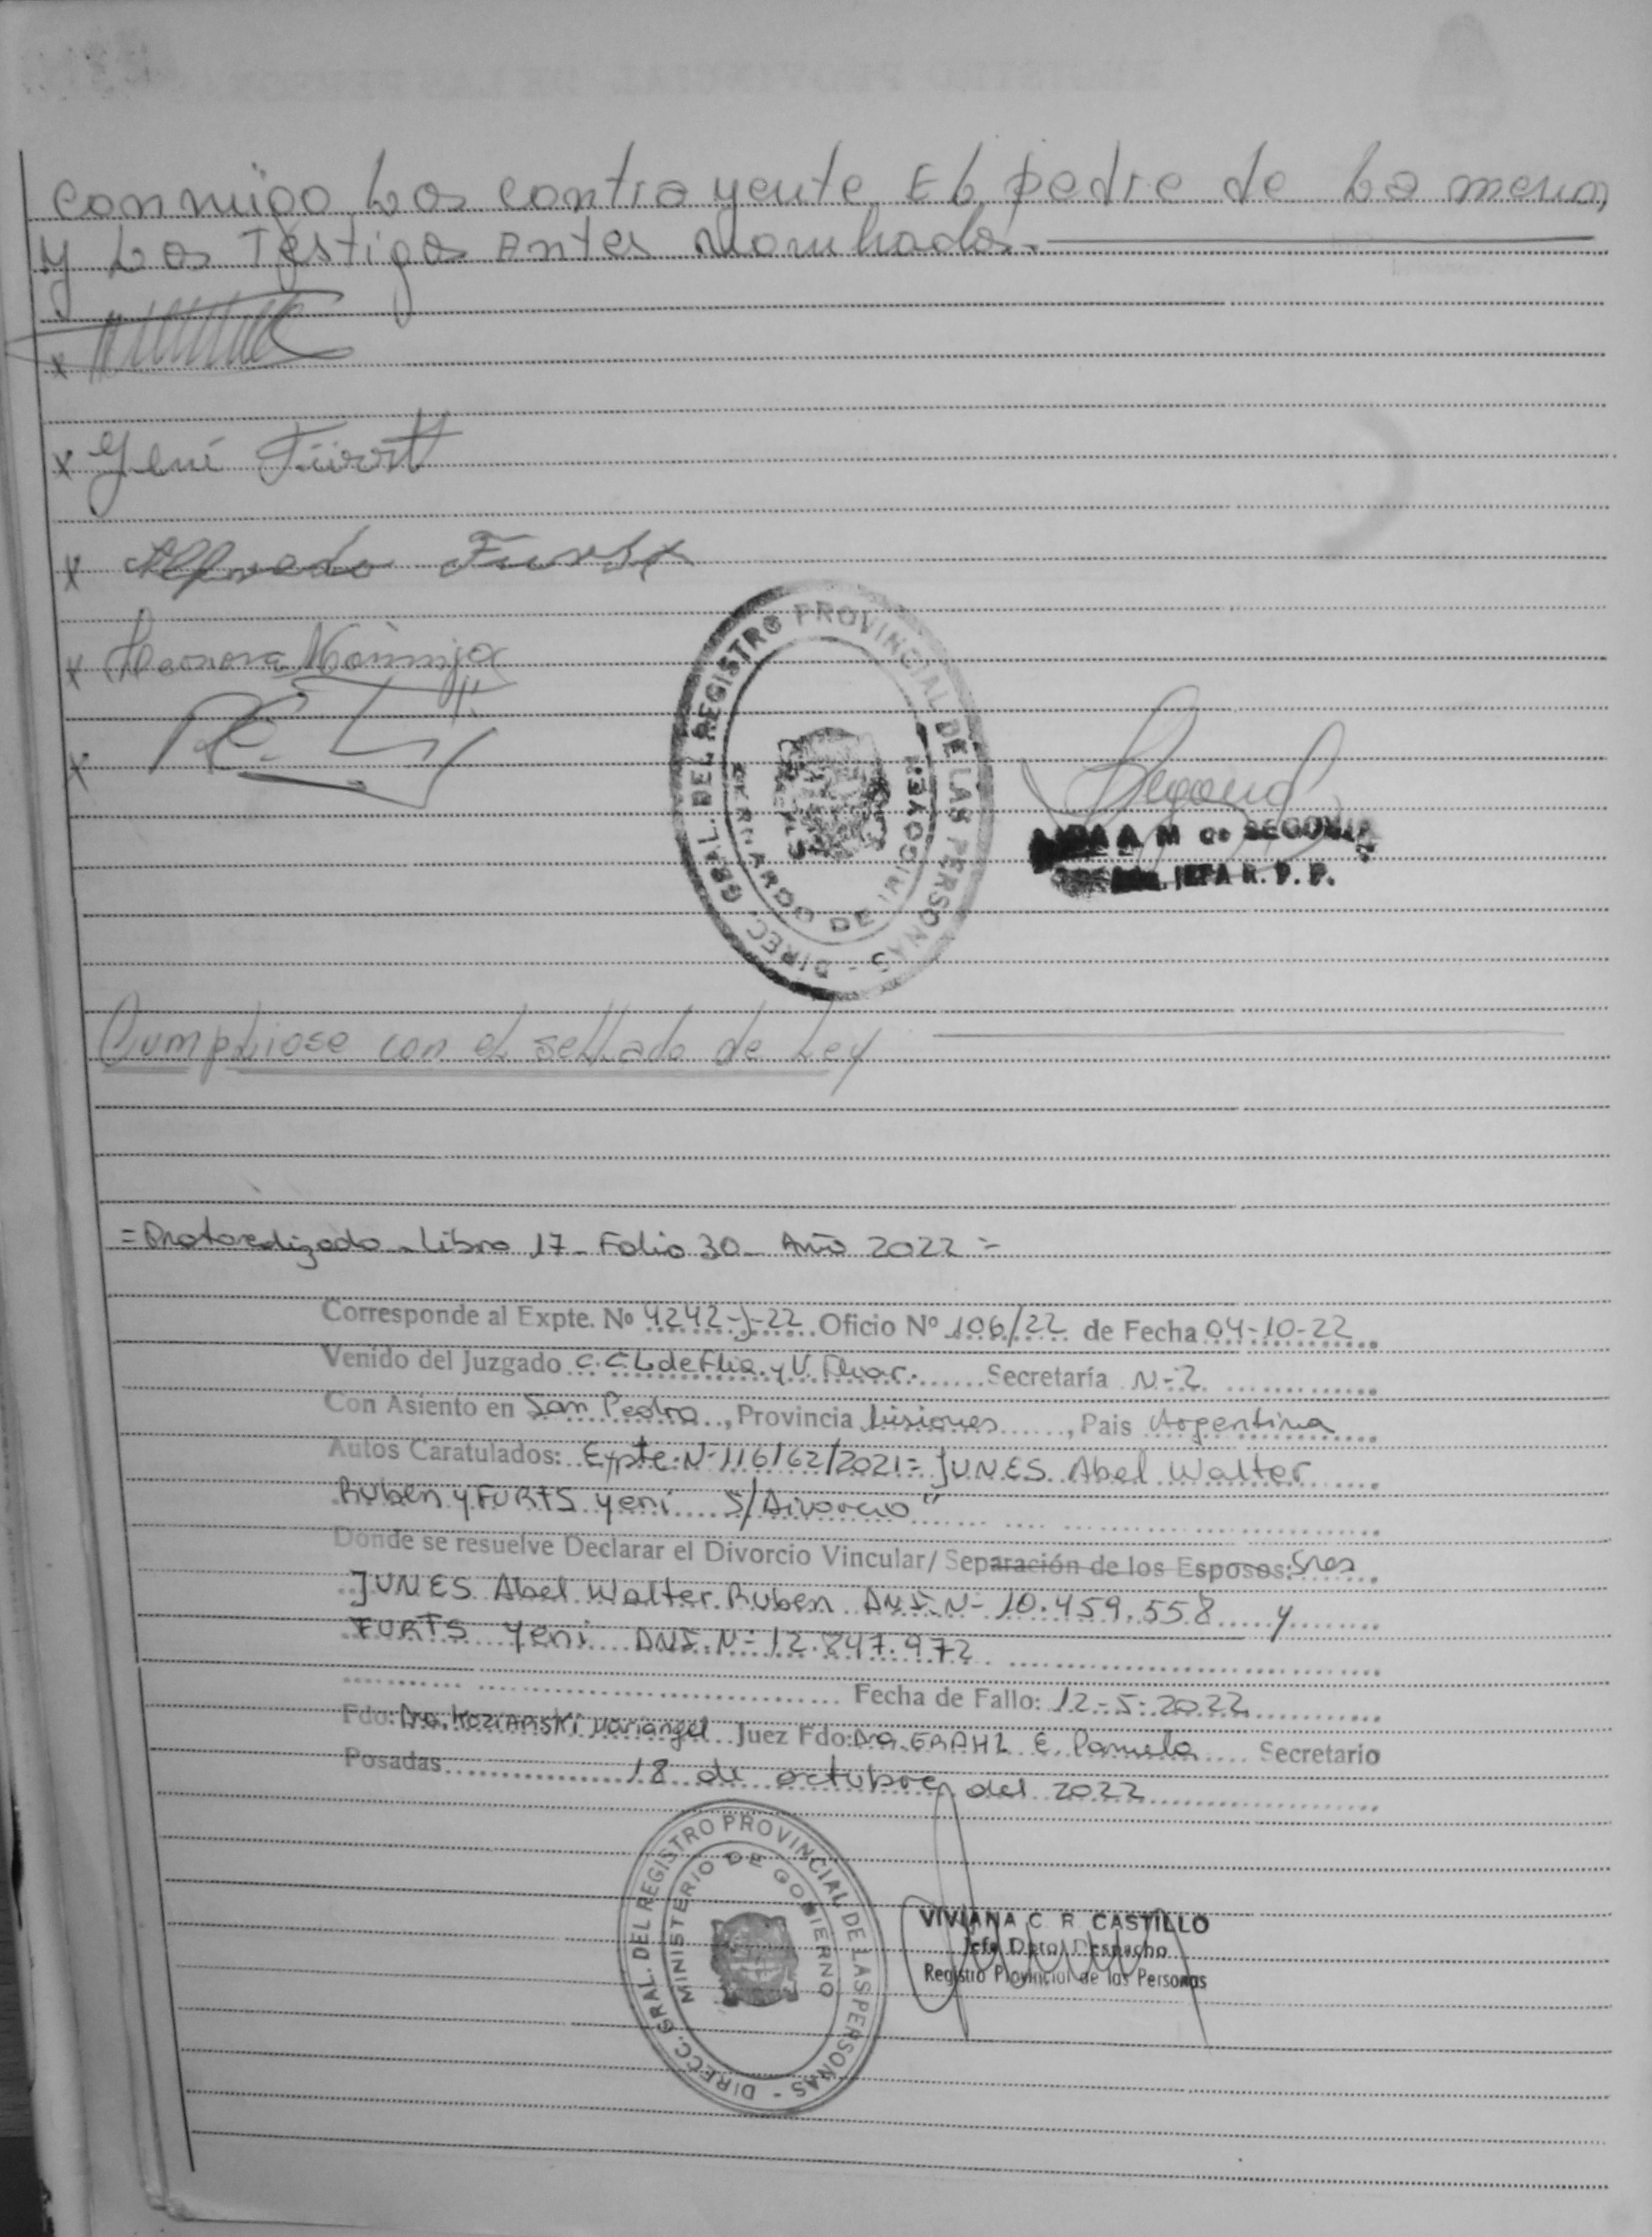 conmigo Los contrayente El padre de La menor,
y Los Testigos Antes Nombrados.
x
x Yeni Fürst
x Alfredo Furst
x
x
DIREC. GRAL. DEL REGISTRO PROVINCIAL DE LAS PERSONAS
A M de SEGOVIA
JEFA R. P. P.
Cumpliose con el sellado de Ley
=Protocolizado - Libro 17 - Folio 30 - Año 2022 =
Corresponde al Expte. No 4242-J-22 Oficio Nº 106/22 de Fecha 04-10-22
Venido del Juzgado C.C.L de Flia. y V. Secretaría N-2
Con Asiento en San Pedro, Provincia Misiones, Pais Argentina
Autos Caratulados: Expte. Nº 116162/2021= JUNES Abel Walter
Ruben y FURTS Yeni S/Divorcio"
Donde se resuelve Declarar el Divorcio Vincular/ Separación de los Esposos: Sres
JUNES Abel Walter Ruben DNI. Nº 10.459.558 y
FURTS Yeni DNI. Nº 12.847.972
Fecha de Fallo: 12-5-2022
Fdo: Dra. Mariangel Juez Fdo: Dra. E. Pamela Secretario
Posadas 18 de octubre del 2022
DIRECC. GRAL. DEL REGISTRO PROVINCIAL DE LAS PERSONAS -
MINISTERIO DE GOBIERNO
VIVIANA C. R. CASTILLO
Jefa Dpto. Despacho
Registro Provincial de las Personas